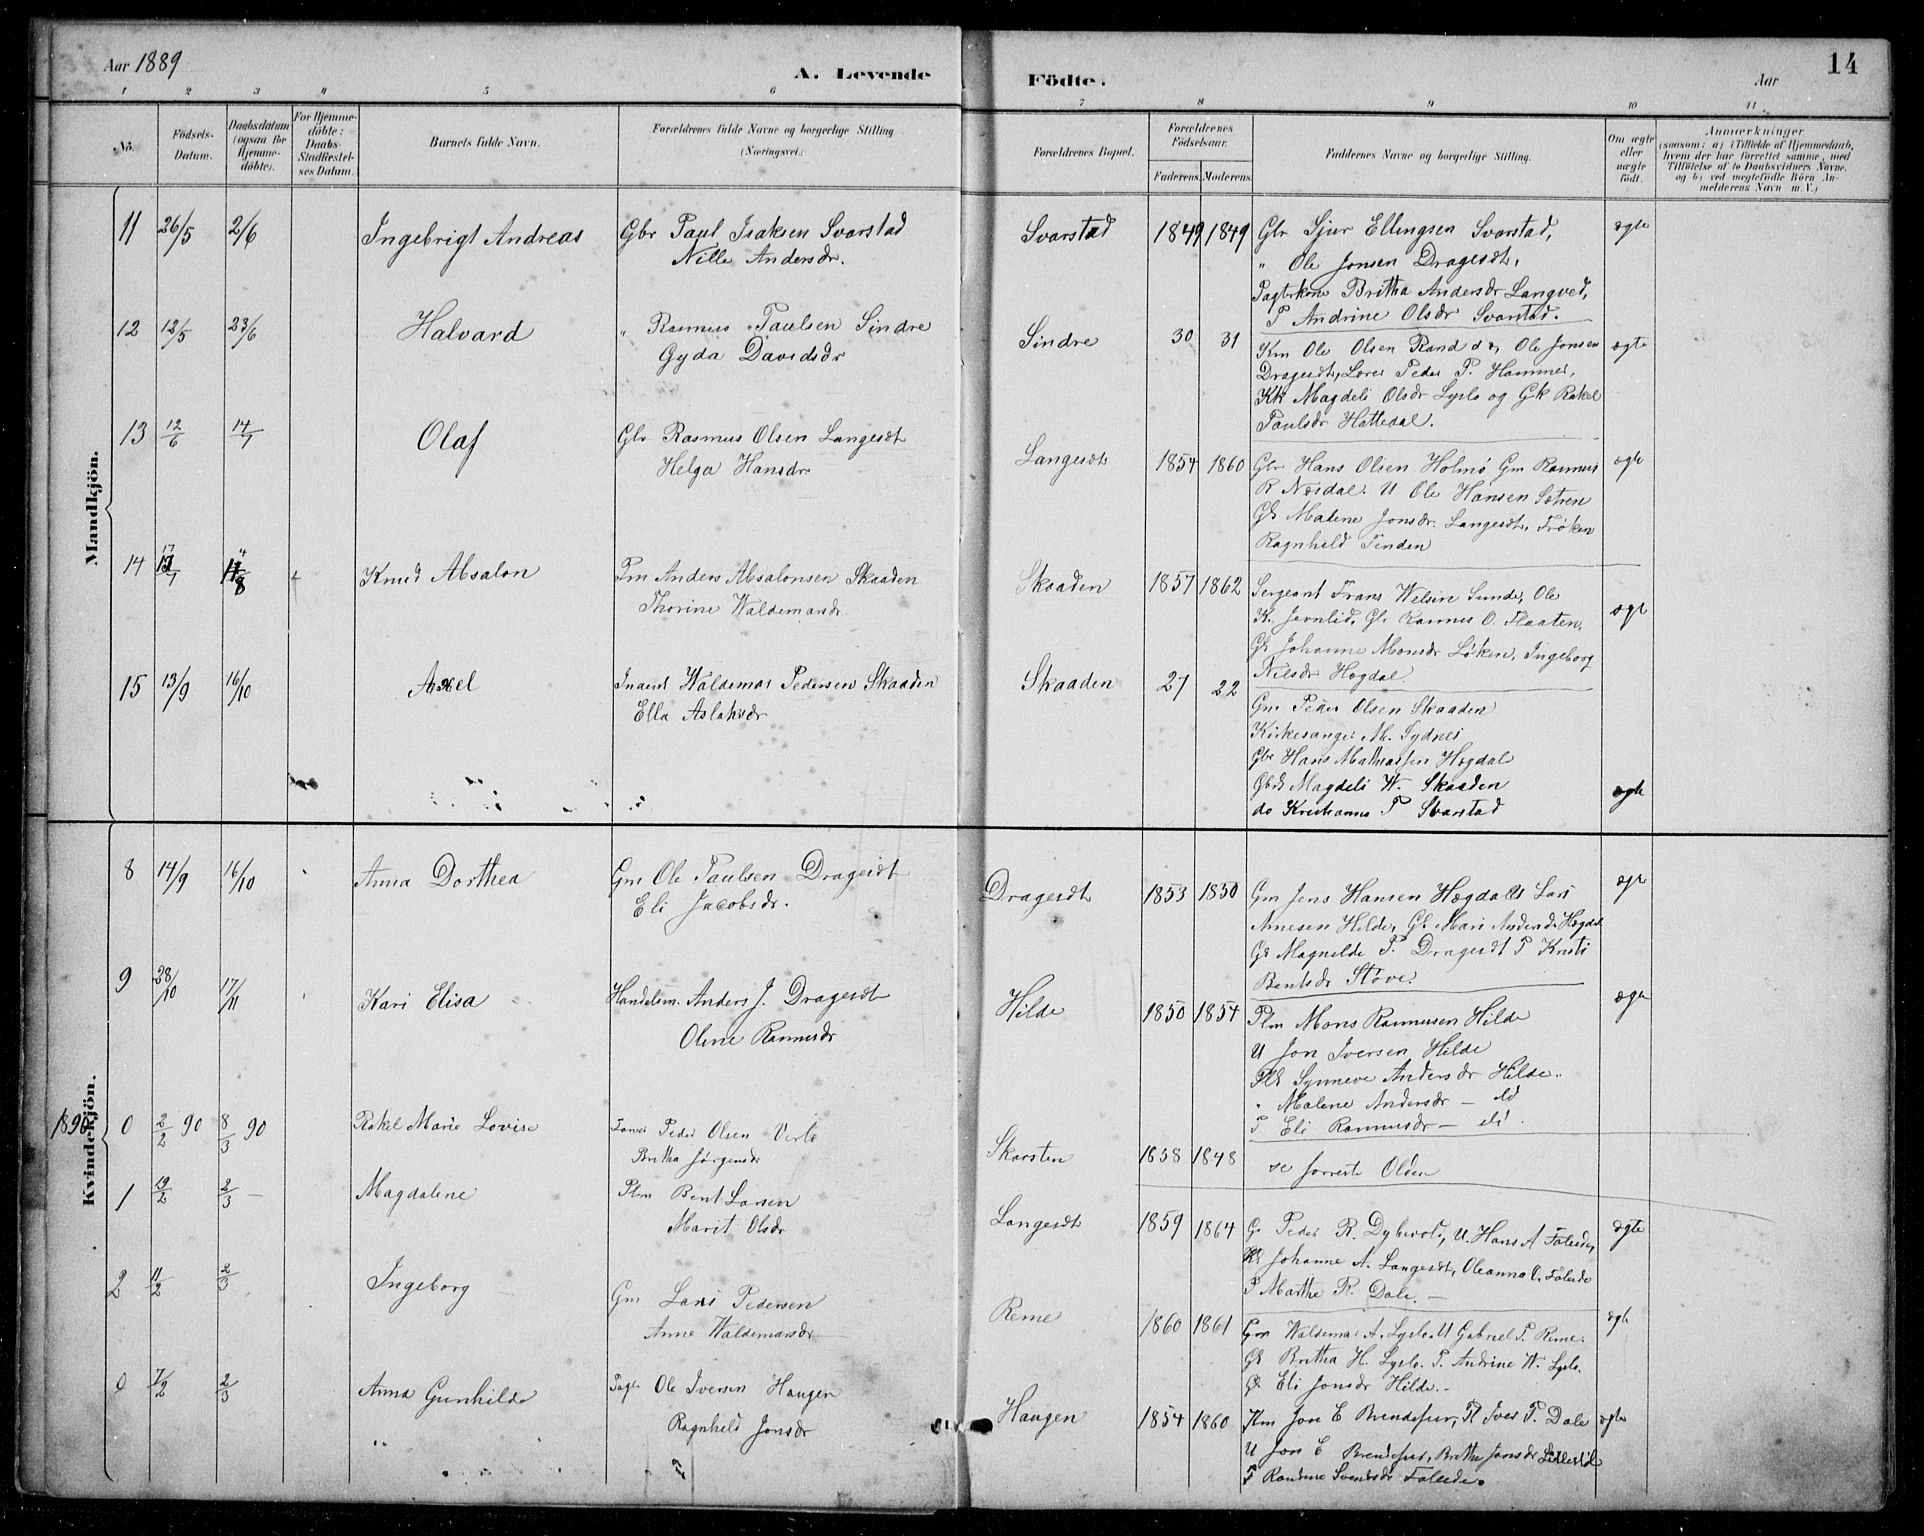 Aar 1889
A. Levende Födte.
Aar
14
1 2 3 4 5 6 7 8 9 10 11
No.
Födsels-Datum.
Daabsdatum (ogsaa for Hjemme-döbte).
For Hjemme-döbte: Daabs-Stadfæstel-ses Datum.
Barnets fulde Navn.
Forældrenes fulde Navne og borgerlige Stilling (Næringsvei.)
Forældrenes Bopæl.
Forældrenes Födselsaar.
Faderens. Moderens.
Faddernes Navne og borgerlige Stilling.
Om ægte eller uægte født.
Anmærkninger
(saasom: a) i Tilfælde af Hjemmedaab,
hvem der har forrettet samme, med
Tilföielse af to Daabsvidners Navne,
og b) ved uægtefödte Börn An-
melderens Navn m. V.)
Mandkjön.
11 26/5 2/6 Ingebrigt Andreas Gbr Paul Isaksen Svarstad Svarstad 1849 1849 Gbr Sjur Ellingsen Svarstad, ægte
Nille Andersdr. " Ole Jonsen Dragesdt,
Britha Andersdr Langved,
P Andrine Olsdr Svarstad.
12 12/5 23/6 Halvard " Rasmus Paulsen Sindre Sindre 30 31 Km Ole Olsen Rand Ole Jonsen ægte
Gyda Davidsdr Dragesdt, Peder P. Hammer,
Kk Magdeli Olsdr Lyslo og Gk Rakel
Paulsdr Hattedal.
13 12/6 14/7 Olaf Gbr Rasmus Olsen Langesdt Langesdt 1854 1860 Gbr Hans Olsen Holmö Gm Rasmus ægte
Helga Hansdr R Nosdal. U Ole Hansen Sætren
Malene Jonsdr. Langesdt, Fröken
Ragnhild Tenden
14 Knud Absalon Pm Anders Absalonsen Skaaden Skaaden 1857 1862 Sergeant Frans Sunde, Ole
Thorine Waldemarsdr. K. Rasmus O. Flaaten, ægte
Johanne Monsdr Løken, Ingeborg
Nilsdr Hogdal.
15 13/9 16/10 Axel Waldemar Pedersen Skaaden Skaaden 27 22
Ella Aslaksdr Gm Peder Olsen Skaaden
Kirkesanger M. Sydnes
Gbr Hans Mathiassen Hogdal
Magdeli W. Skaaden ægte
do Kristianna P Svarstad
Kvindekjön.
8 14/9 16/10 Anna Dorthea Gm Ole Paulsen Dragesdt Dragesdt 1853 1850 Gm Jens Hansen Hogdal Lars ægt
Eli Jacobsdr. Arnesen Hilde, Mari Andersdr Hogdal
Magnilde P. Dragesdt P Kristi
Bentsdr Støve.
9 28/10 17/11 Kari Elisa Handelsm. Anders J. Dragesdt Hilde 1850 1854 Plm Mons Rasmusen Hilde ægte
Oline Rasmusdr U Jon Iversen Hilde
Synneve Andersdr Hilde.
" Malene Andersdr — do
P Eli Rasmusdr — do.
1890 0 2/2 90 8/3 90 Rakel Marie Lovise Peder Olsen Skarsten 1858 1848 se forreste Olden
Britha Jørgensdr
1 19/2 2/3 — Magdalene Plm Bent Larsen Langesdt 1859 1864 G Peder R. Dybevold, U. Hans A Faleide, ægte
Marit Olsdr Johanne A. Langesdt, Oleanna O. Faleide
P Marthe R. Dale. —
2 11/2 2/3 Ingeborg Gm Lars Pedersen Reme 1860 1861 Gm Waldemar A. Lyslo. U Gabriel P. Reme. ægte
Anne Waldemarsdr Britha H. Lyslo. P. Andrine W. Lyslo.
Eli Jonsdr Hilde. —
7/2 2/3 Anna Gunhilde Ole Iversen Haugen Haugen 1854 1860 Km Jon E Brendefur, Iver P. Dale ægte
Ragnhild Jonsdr U Jon E Brendefur, Brithe Jonsdr
Svendsdr Faleide.